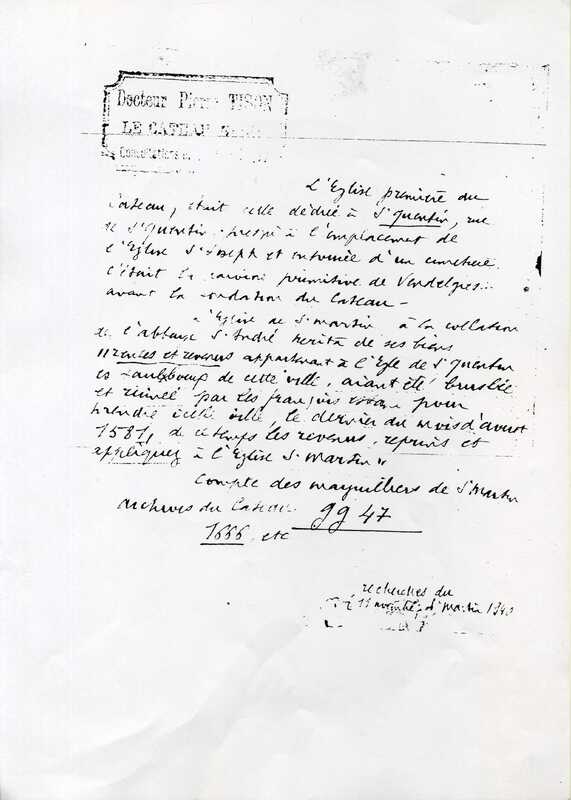 Docteur Pierre TISON
LE CATEAU
Consultations
L'Eglise première du
Cateau, était celle dédiée à St Quentin, rue
de St Quentin à l'emplacement de
l'Eglise St Joseph et entourée d'un cimetière.
C'était la paroisse primitive de Vendelgies...
avant la fondation du Cateau -
"L'Eglise de St Martin à la collation
de l'abbaye St André hérita de ses biens
"rences et revenus appartenant à l'Egle de St Quentin
es faulxbourg de cette ville, aiant été bruslée
et ruinée par les françois pour
prendre cette ville, le dernier du mois d'aoust
1581, de ce temps les revenus, reprins et
appliquez à l'Eglise St Martin "
Compte des marguilliers de St Martin
Archives du Cateau gg 47
1666, etc
recherches du
11 novembre, St Martin 1940